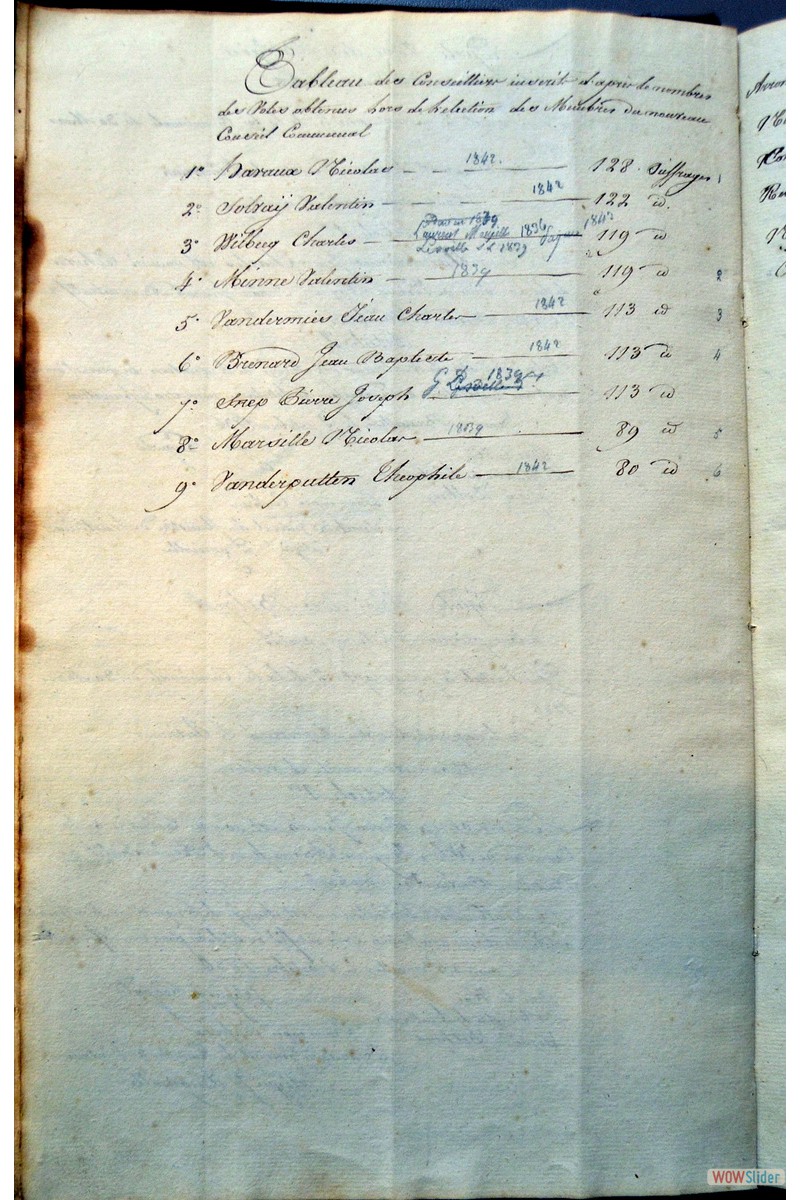 Tableau des Conseillers inscrits d'après le nombres
des Votes obtenus hors de l'election des Membres du nouveau
Conseil Communal
1° Haraux Nicolas — 1842. — 128. Suffrages 1
2° Solvaÿ Valentin — 1842 — 122 id
3° Wilbecq Charles — 1839 Laurent 1836 1839 1842 — 119 id
4° Minne Valentin — 1839 — 119 id 2
5° Vandermies Jean Charles — 1842 — 113 id 3
6° Brenard Jean Baptiste — 1842 — 113 id 4
7° Snep Pierre Joseph — G 1839 — 113 id
8° Marsille Nicolas — 1839 — 89 id 5
9° Vanderputten Théophile — 1842 — 80 id 6
WOWSlider